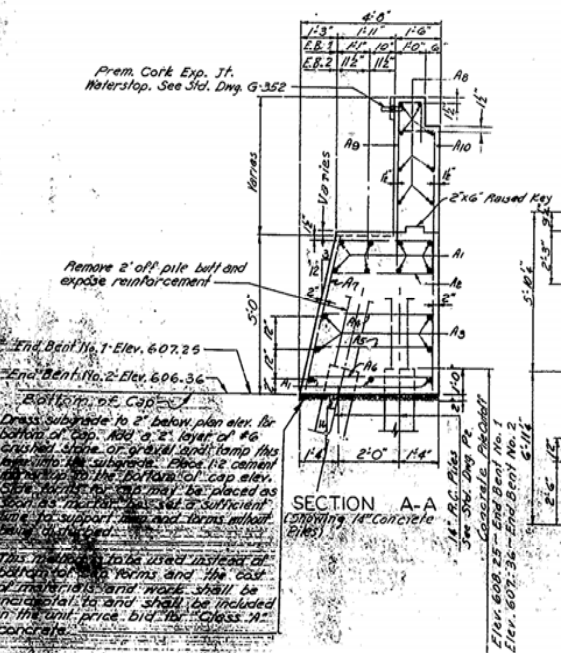 4'-8"
1'-3" 1'-11" 1'-6"
E.B. 1 1'-1" 10" 1'-0" 6"
E.B. 2 11½" 11½"
Prem. Cork Exp. Jt.
Waterstop. See Std. Dwg. G-352
A8
1½"
A9
A10
Varies
Varies
1½"
1½"
2"x6" Raised Key
A1
A2
3
12
A7
2"
2"
Remove 2' off pile butt and
expose reinforcement
5'-0"
12"
12"
A4
A5
A3
A6
A1
End Bent No. 1-Elev. 607.25
End Bent No. 2-Elev. 606.36
Bottom of Cap
1'-0"
2"
Dress subgrade to 2" below plan elev. for
bottom of cap. Add a 2" layer of #6
crushed stone or gravel and tamp this
layer into the subgrade. Place 1:2 cement
to the bottom of cap elev.
may be placed as
as mortar has set a sufficient
time to support men and forms without
being
This to be used instead of
bottom forms and the cost
of materials and work shall be
incidental to and shall be included
in the unit price bid for "Class 'A'"
concrete.
1'-4" 2'-0" 1'-4"
SECTION A-A
(Showing 14" Concrete
Piles)
R.C. Piles
See Std. Dwg. Pe.
Concrete Pile Cutoff
Elev. 608.25-End Bent No. 1
Elev. 607.36-End Bent No. 2
5'-10½"
2'-3"
2'-6"
12"